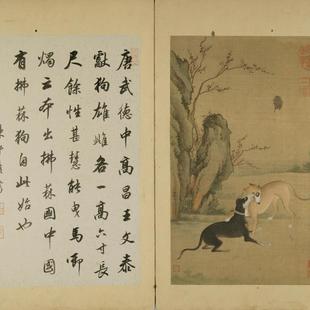 唐武德中高昌王文泰
獻狗雄雌各一高六寸長
尺餘性甚慧能曳馬啣
燭云本出拂菻國中國
有拂菻狗自此始也